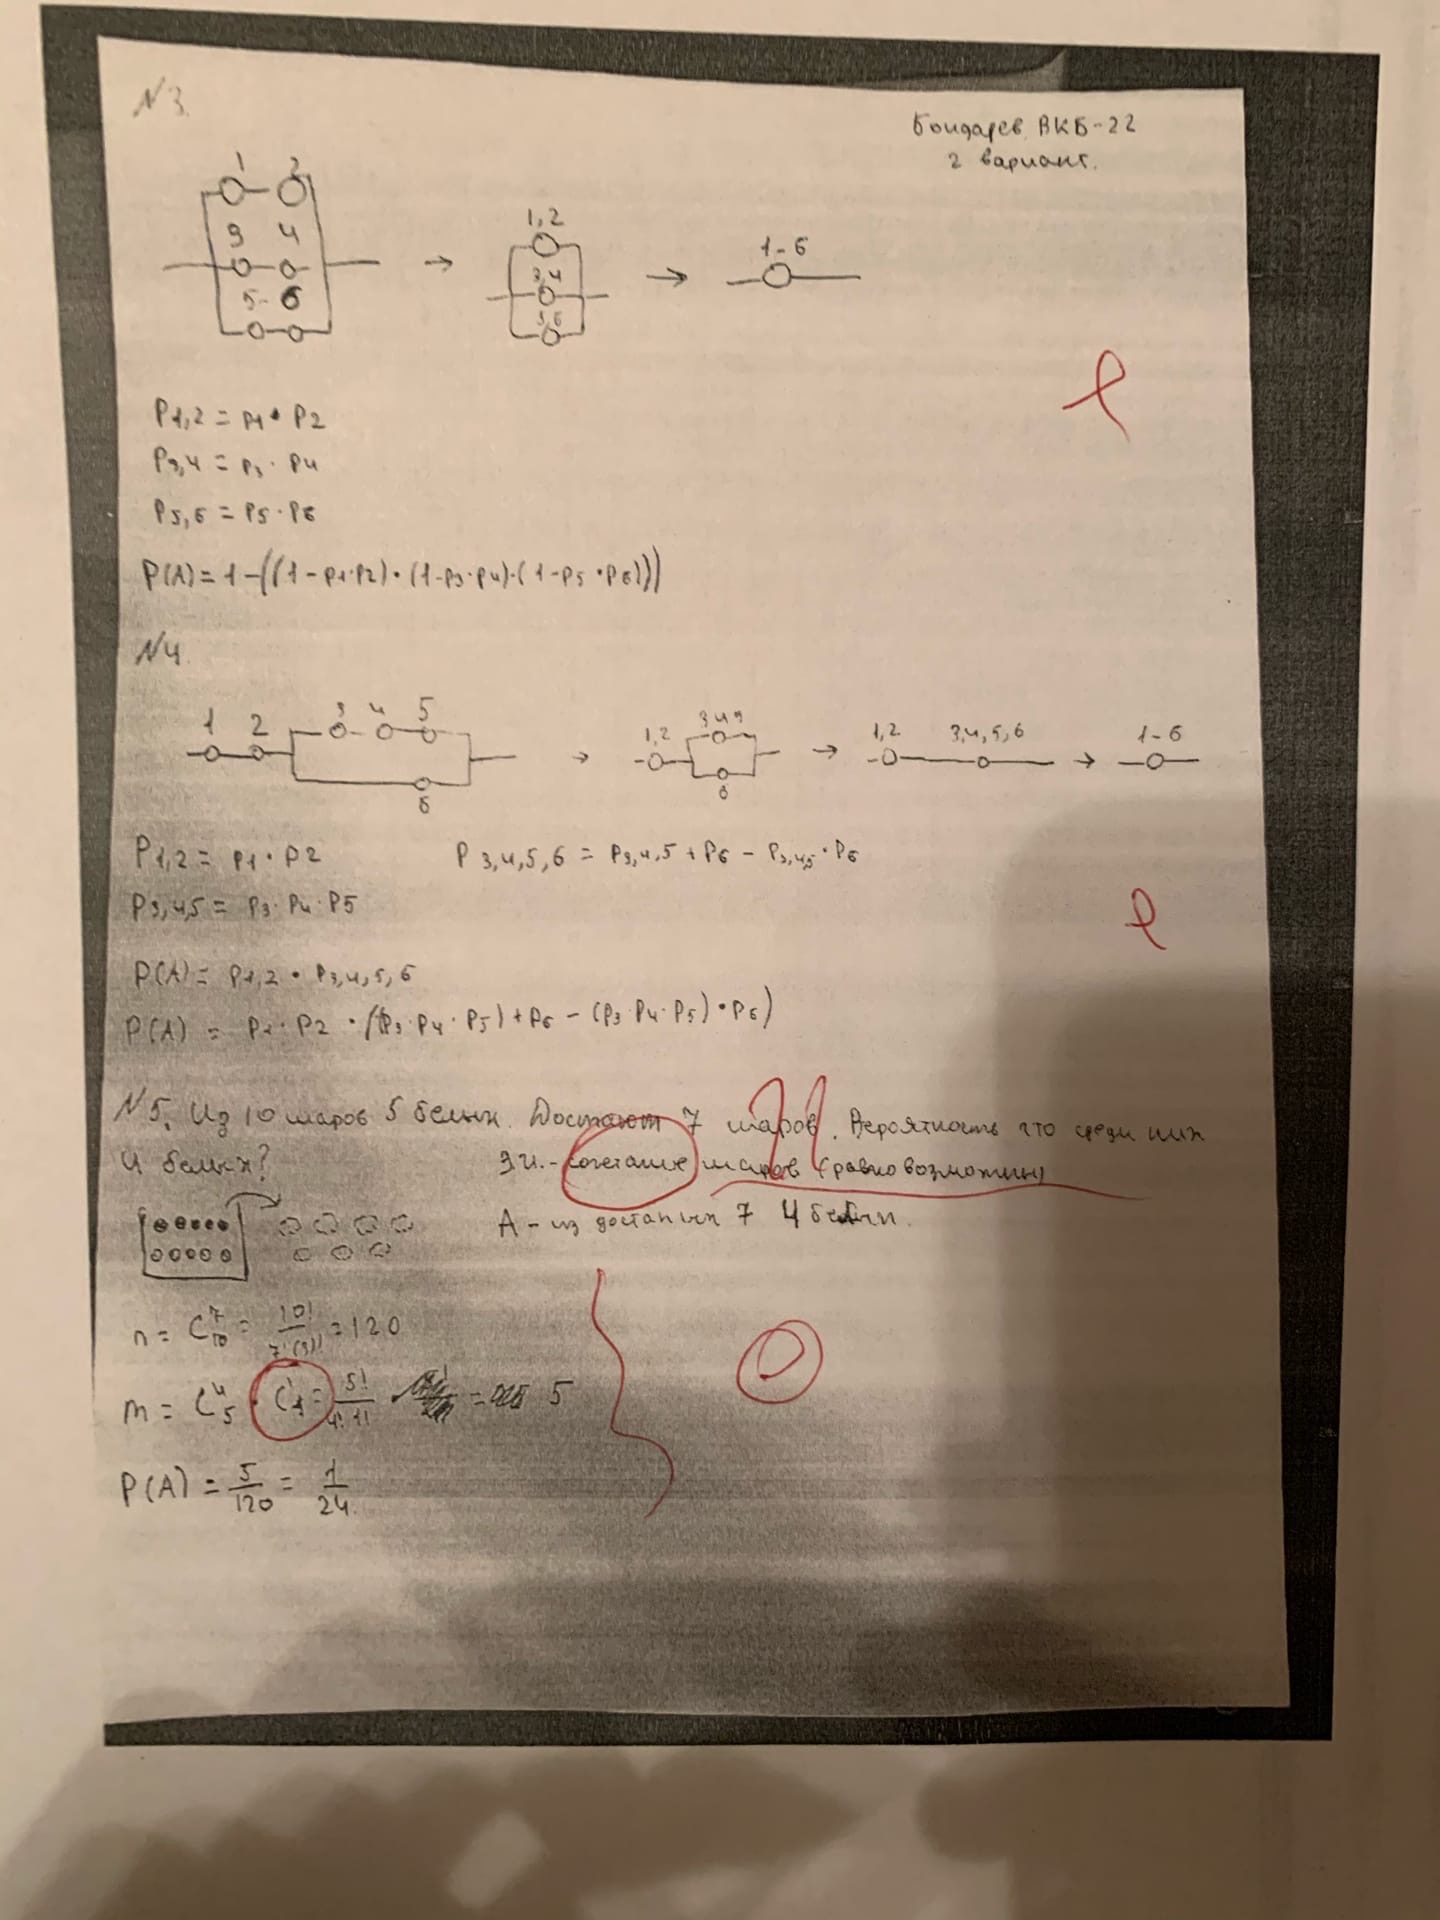 N3.
Бондарев ВКБ-22
2 вариант.
1 2
3 4
5 6
1,2
3,4
5,6
→
→
1-6
P1,2 = p1 • p2
P3,4 = p3 · p4
P5,6 = p5 · p6
P(A) = 1 - ((1 - p1·p2) • (1-p3·p4)·(1-p5•p6)))
N4.
1 2 3 4 5
6
→
1,2 3 4 5
6
→
1,2 3,4,5,6
→
1-6
P1,2 = p1 · p2 P 3,4,5,6 = P3,4,5 + P6 - P3,4,5 · P6
P3,4,5 = p3 · p4 · p5
P(A) = P1,2 • P3,4,5,6
P(A) = p1 · p2 • ((p3 · p4 · p5) + p6 - (p3 · p4 · p5) • p6)
N5. Из 10 шаров 5 белых. Достают 7 шаров. Вероятность что среди них
4 белых?
Э.и. - сочетание шаров (равновозможны)
А - из достаных 7 4 белых.
n = C₁₀⁷ = 10!/7!(3)! = 120
m = C₅⁴ · C₁¹ = 5!/4!·1! · = 5
P(A) = 5/120 = 1/24.
0